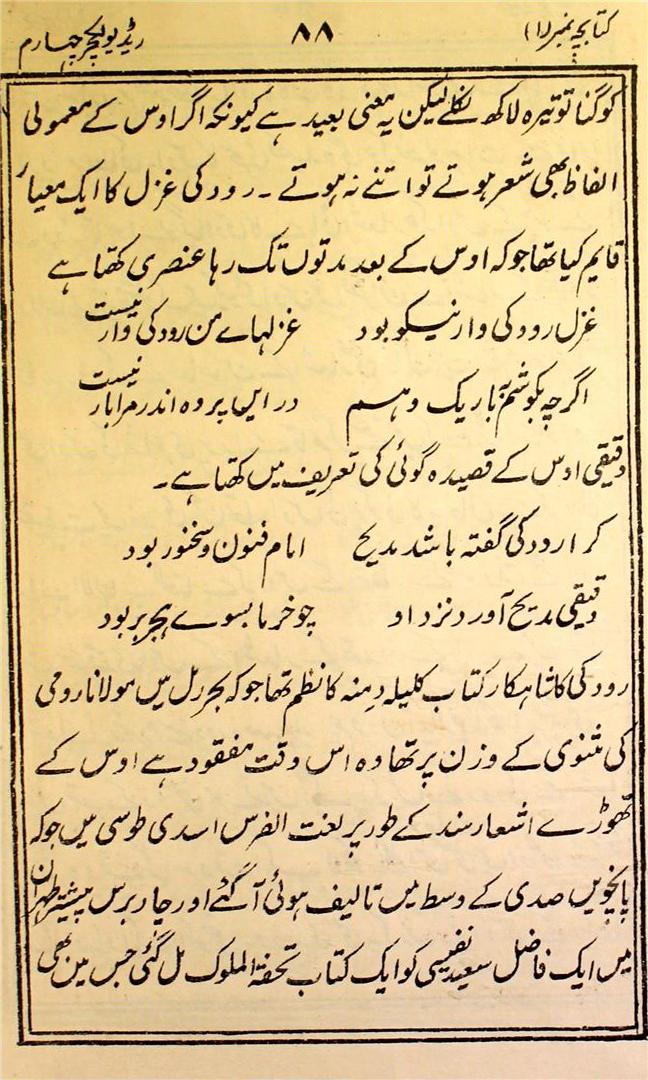 کتابچہ نمبر (۱) ۸۸ ریڈیو لکچر چہارم
کو گنا تو تیرہ لاکھ نکلے لیکن یہ معنی بعید ہے کیونکہ اگر اوس کے معمولی
الفاظ بھی شعر ہوتے تو اتنے نہ ہوتے ۔ رودکی غزل کا ایک معیار
قایم کیا تھا جو کہ اوس کے بعد مدتوں تک رہا عنصری کہتا ہے
غزل رودکی وار نیکو بود غزلہاے من رودکی وار نیست
اگرچہ بکوشم بباریک وہم در این پردہ اندر مرا بار نیست
دقیقی اوس کے قصیدہ گوئی کی تعریف میں کہتا ہے ۔
کرا رودکی گفتہ باشد مدیح امام فنون و سخنور بود
دقیقی مدیح آورد نزد او چو خرما بسوے ہجر بر بود
رودکی کا شاہکار کتاب کلیلہ دمنہ کا نظم تھا جو کہ بحر رمل میں مولانا رومی
کی مثنوی کے وزن پر تھا وہ اس وقت مفقود ہے اوس کے
تھوڑے اشعار سند کے طور پر لغت الفرس اسدی طوسی میں جو کہ
پانچویں صدی کے وسط میں تالیف ہوئی آگئے اور چار برس پیشتر طہران
میں ایک فاضل سعید نفیسی کو ایک کتاب تحفۃ الملوک مل گئی جس میں بھی